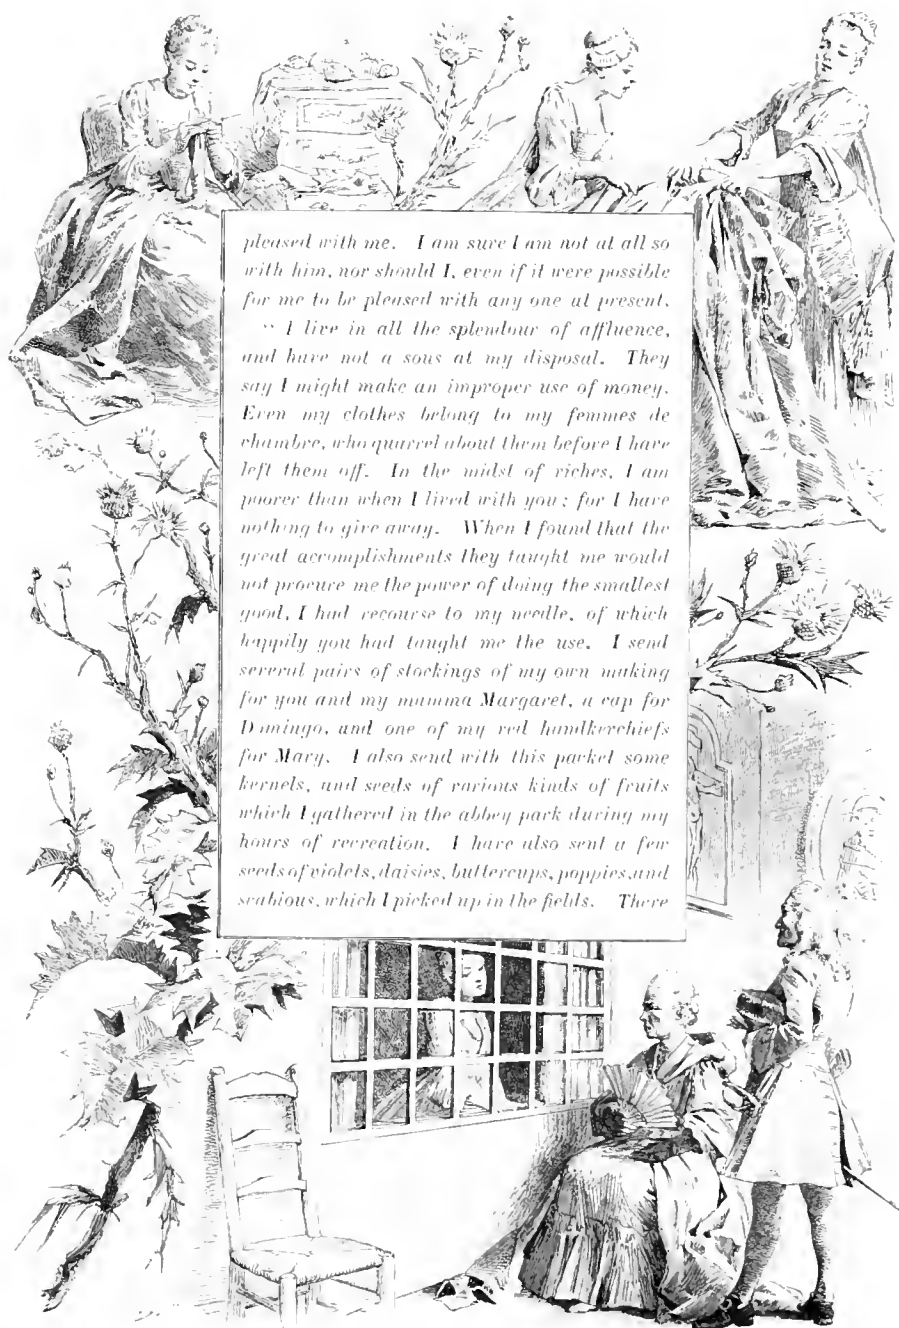 pleased with me. I am sure I am not at all so
with him, nor should I, even if it were possible
for me to be pleased with any one at present.
" I live in all the splendour of affluence,
and have not a sous at my disposal. They
say I might make an improper use of money.
Even my clothes belong to my femmes de
chambre, who quarrel about them before I have
left them off. In the midst of riches, I am
poorer than when I lived with you; for I have
nothing to give away. When I found that the
great accomplishments they taught me would
not procure me the power of doing the smallest
good, I had recourse to my needle, of which
happily you had taught me the use. I send
several pairs of stockings of my own making
for you and my mamma Margaret, a cap for
Domingo, and one of my red handkerchiefs
for Mary. I also send with this packet some
kernels, and seeds of various kinds of fruits
which I gathered in the abbey park during my
hours of recreation. I have also sent a few
seeds of violets, daisies, buttercups, poppies, and
scabious, which I picked up in the fields. There